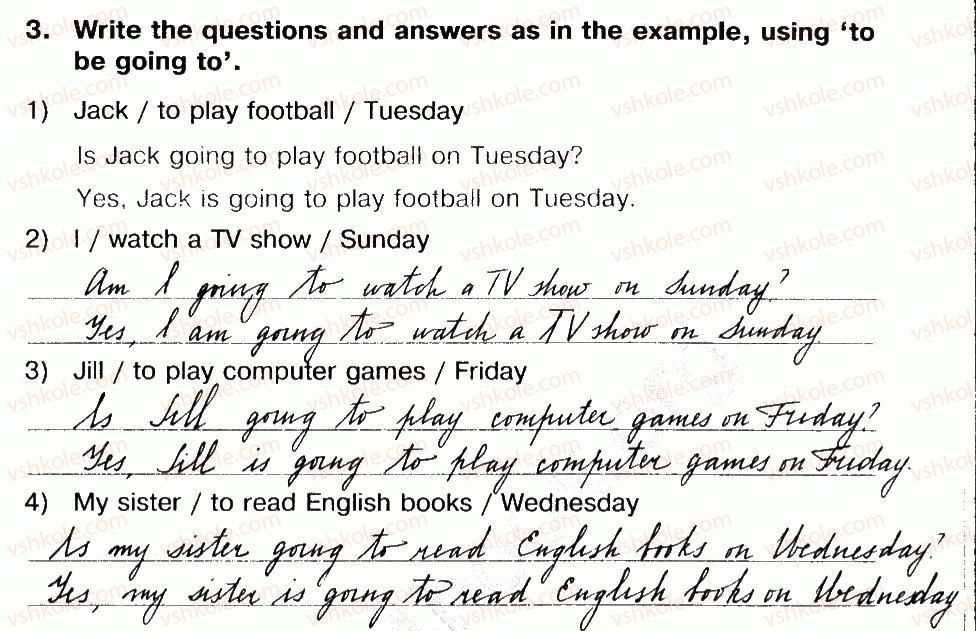 3. Write the questions and answers as in the example, using ‘to
be going to’.
1) Jack / to play football / Tuesday
Is Jack going to play football on Tuesday?
Yes, Jack is going to play football on Tuesday.
2) I / watch a TV show / Sunday
Am I going to watch a TV show on Sunday?
Yes, I am going to watch a TV show on Sunday
3) Jill / to play computer games / Friday
Is Jill going to play computer games on Friday?
Yes, Jill is going to play computer games on Friday.
4) My sister / to read English books / Wednesday
Is my sister going to read English books on Wednesday?
Yes, my sister is going to read English books on Wednesday
vshkole.com